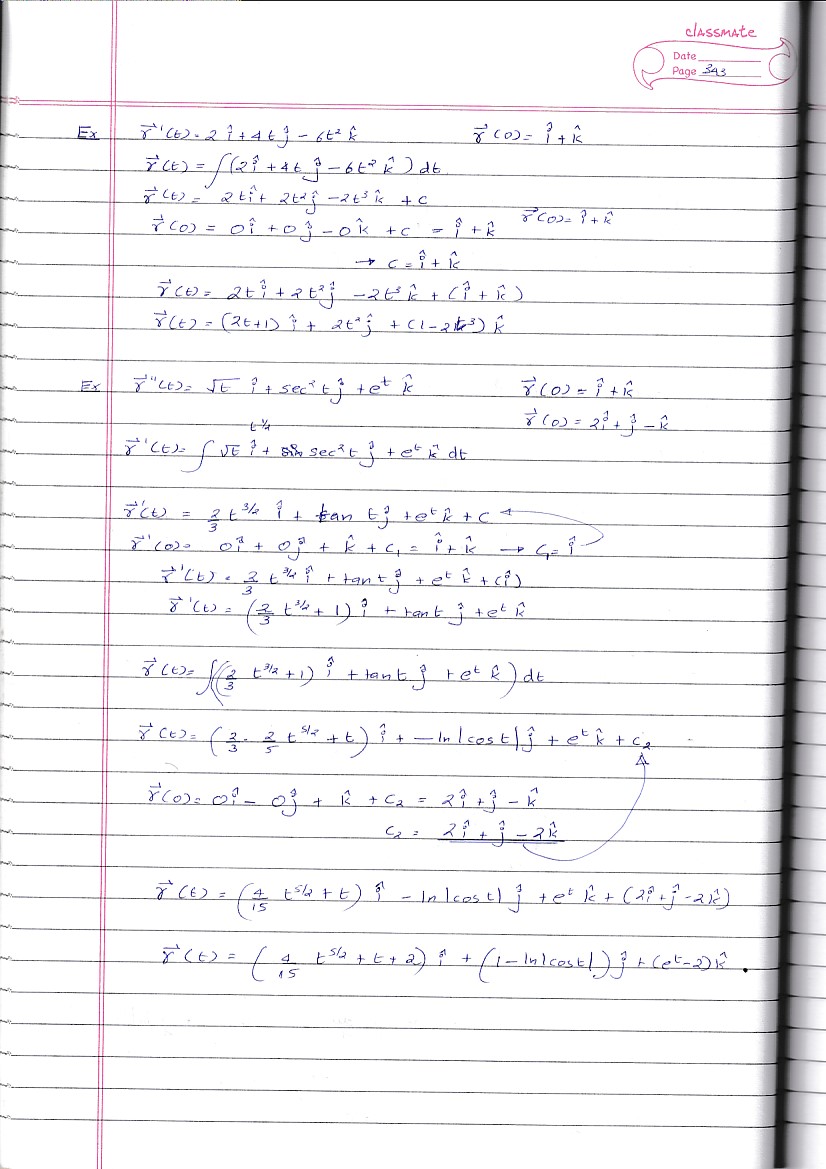 classmate
Date
Page 343
Ex r⃗'(t) = 2 î + 4t ĵ - 6t² k̂ r⃗(0) = î + k̂
r⃗(t) = ∫(2î + 4t ĵ - 6t² k̂) dt
r⃗(t) = 2t î + 2t² ĵ - 2t³ k̂ + c
r⃗(0) = 0î + 0ĵ - 0k̂ + c = î + k̂ r⃗(0) = î + k̂
→ c = î + k̂
r⃗(t) = 2t î + 2t² ĵ - 2t³ k̂ + (î + k̂)
r⃗(t) = (2t+1) î + 2t² ĵ + (1-2t³) k̂
Ex r⃗''(t) = √t î + sec² t ĵ + eᵗ k̂ r⃗(0) = î + k̂
r⃗(0) = 2î + ĵ - k̂
r⃗'(t) = ∫ √t î + sec² t ĵ + eᵗ k̂ dt
r⃗'(t) = 2/3 t^3/2 î + tan t ĵ + eᵗ k̂ + c
r⃗'(0) = 0î + 0ĵ + k̂ + c₁ = î + k̂ → c₁ = î
r⃗'(t) = 2/3 t^3/2 î + tan t ĵ + eᵗ k̂ + (î)
r⃗'(t) = (2/3 t^3/2 + 1) î + tan t ĵ + eᵗ k̂
r⃗(t) = ∫((2/3 t^3/2 + 1) î + tan t ĵ + eᵗ k̂) dt
r⃗(t) = (2/3 · 2/5 t^5/2 + t) î + -ln|cos t| ĵ + eᵗ k̂ + c₂
r⃗(0) = 0î - 0ĵ + k̂ + c₂ = 2î + ĵ - k̂
c₂ = 2î + ĵ - 2k̂
r⃗(t) = (4/15 t^5/2 + t) î - ln|cos t| ĵ + eᵗ k̂ + (2î + ĵ - 2k̂)
r⃗(t) = (4/15 t^5/2 + t + 2) î + (1 - ln|cos t|) ĵ + (eᵗ - 2) k̂.